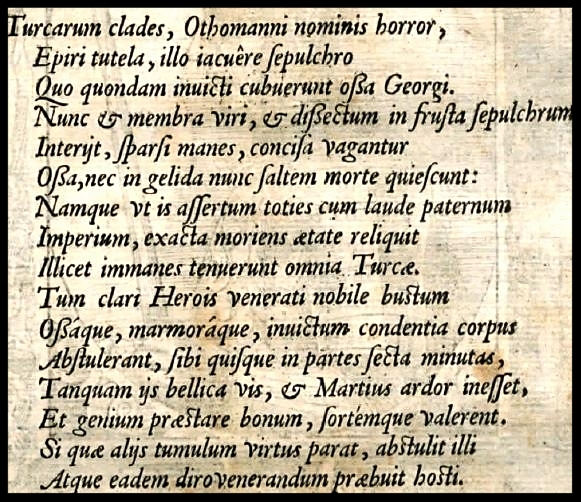 Turcarum clades, Othomanni nominis horror,
Epiri tutela, illo iacuêre ſepulchro
Quo quondam inuicti cubuerunt oſſa Georgi.
Nunc & membra viri, & diſſectum in fruſta ſepulchrum
Interijt, ſparſi manes, conciſa vagantur
Oſſa, nec in gelida nunc ſaltem morte quieſcunt:
Namque vt is aſſertum toties cum laude paternum
Imperium, exacta moriens ætate reliquit
Illicet immanes tenuerunt omnia Turcæ.
Tum clari Herois venerati nobile buſtum
Oſſáque, marmoráque, inuictum condentia corpus
Abſtulerant, ſibi quiſque in partes ſecta minutas,
Tanquam ijs bellica vis, & Martius ardor ineſſet,
Et genium præſtare bonum, ſortémque valerent.
Si quæ alijs tumulum virtus parat, abſtulit illi
Atque eadem diro venerandum præbuit hoſti.